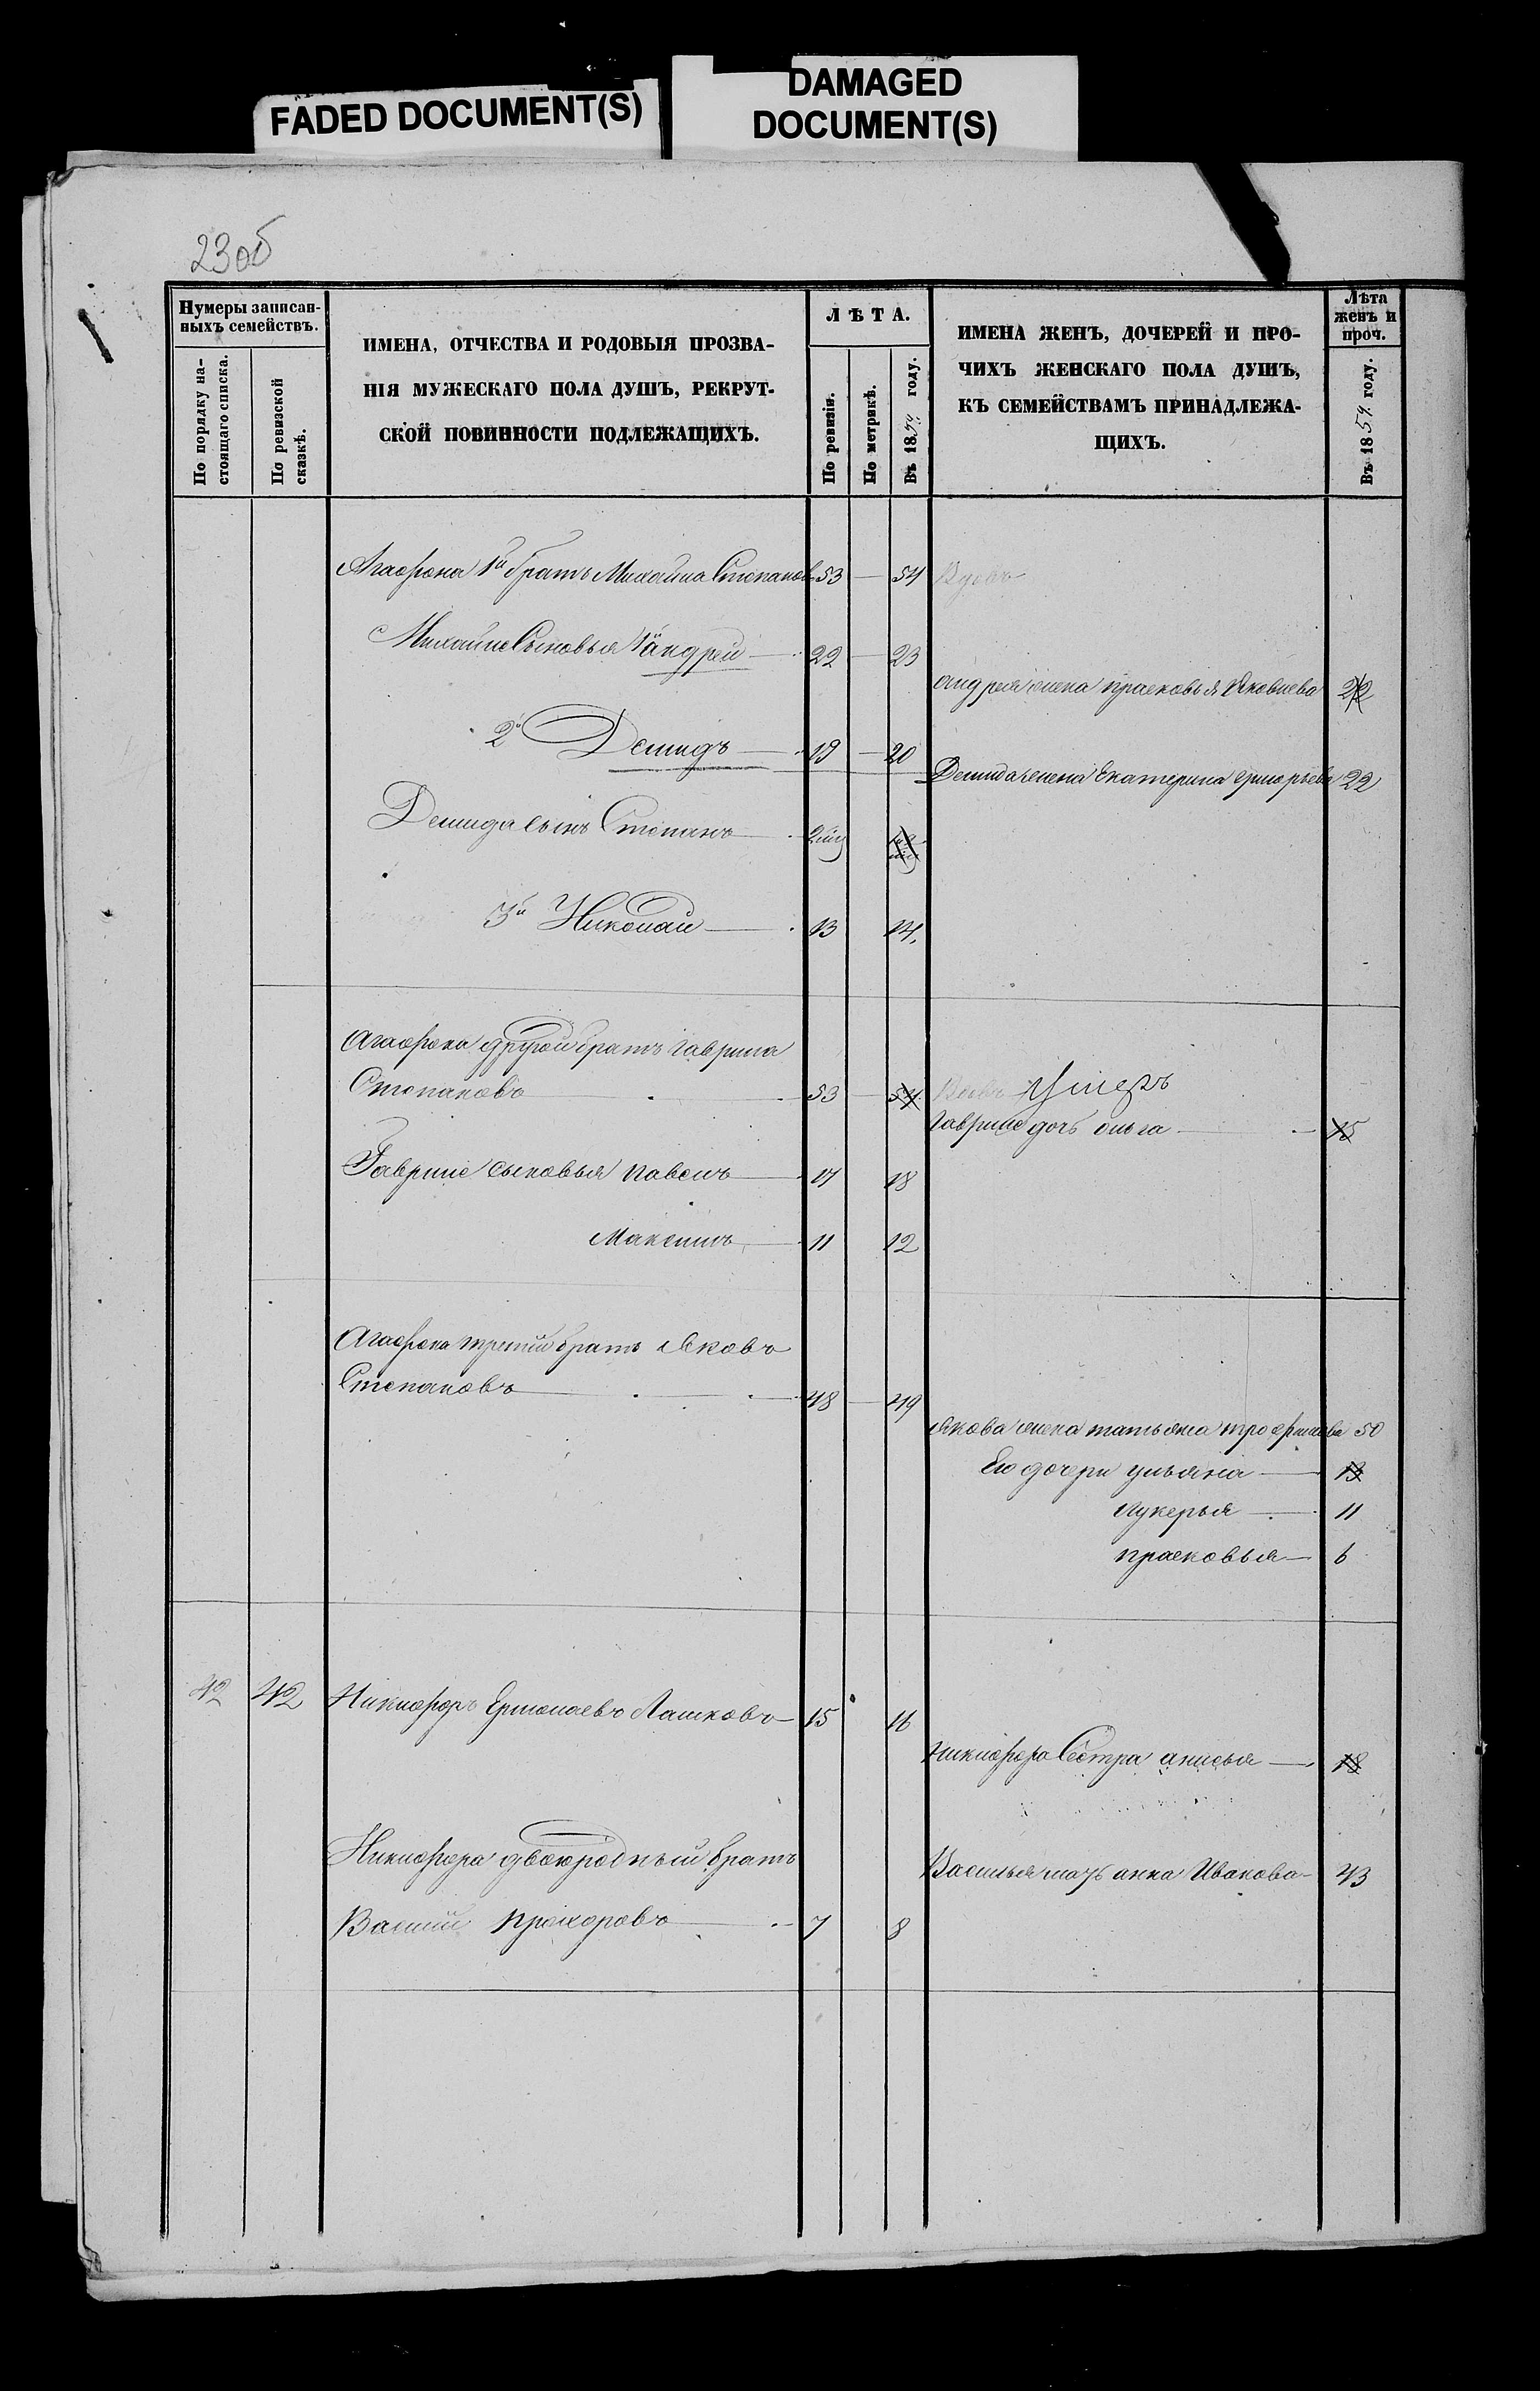 FADED DOCUMENT(S)
DAMAGED
DOCUMENT(S)
23об
Нумеры записан-
ныхъ семействъ.
По порядку на-
стоящаго списка.
По ревизской
сказкѣ.
ИМЕНА, ОТЧЕСТВА И РОДОВЫЯ ПРОЗВА-
НІЯ МУЖЕСКАГО ПОЛА ДУШЪ, РЕКРУТ-
СКОЙ ПОВИННОСТИ ПОДЛЕЖАЩИХЪ.
ЛѢТА.
По ревизіи.
По метрикѣ.
Въ 1859. году.
ИМЕНА ЖЕНЪ, ДОЧЕРЕЙ И ПРО-
ЧИХЪ ЖЕНСКАГО ПОЛА ДУШЪ,
КЪ СЕМЕЙСТВАМЪ ПРИНАДЛЕЖА-
ЩИХЪ.
Лѣта
женъ и
проч.
Въ 1859. году.
Агафона 1й братъ Михайла Степановъ 53 — 54 Вдовъ
Михайлы Сыновья 1й андрей — 22 — 23
андрея жена прасковья Яковлева 22
2й Демидъ — 19 — 20
Демида жена Екатерина григорьева 22
Демида сынъ Степанъ —
3й Николай — 13 14.
Агафона другой братъ гаврила
Степановъ — 53 — 54 Вдовъ Умеръ
гаврилы дочь ольга — 15
Гаврилы сыновья павелъ — 17 18
Максимъ — 11 12
Агафона третій братъ Яковъ
Степановъ — 48 — 49
Якова жена татьяна трофимова 50
Его дочери ульяна — 13
лукерья — 11
прасковья — 6
42 42 Никифоръ Ермолаевъ Лашковъ — 15 16
Никифора Сестра анисья — 18
Никифора двоюродный братъ
Василья мать анна Иванова — 43
Василій прохоровъ — 7 8